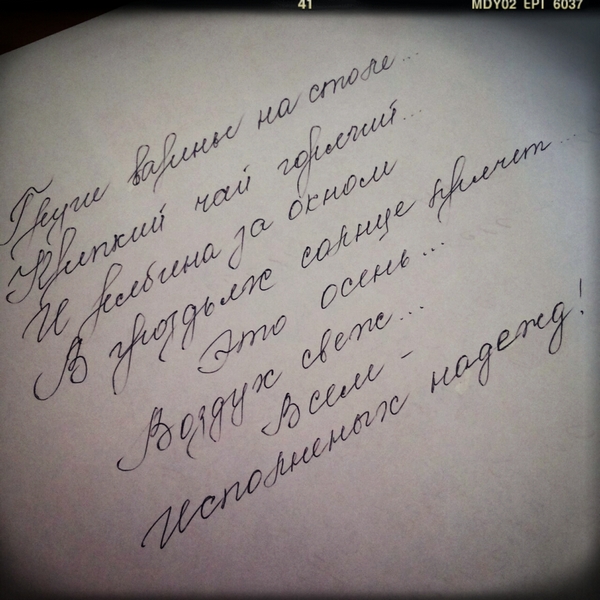 41 MDY02 EPT 6037
Груши на столе...
Крепкий чай горячий...
И рябина за окном
В гроздьях солнце прячет...
Это осень...
Воздух свеж...
Всем -
Исполненых надежд!